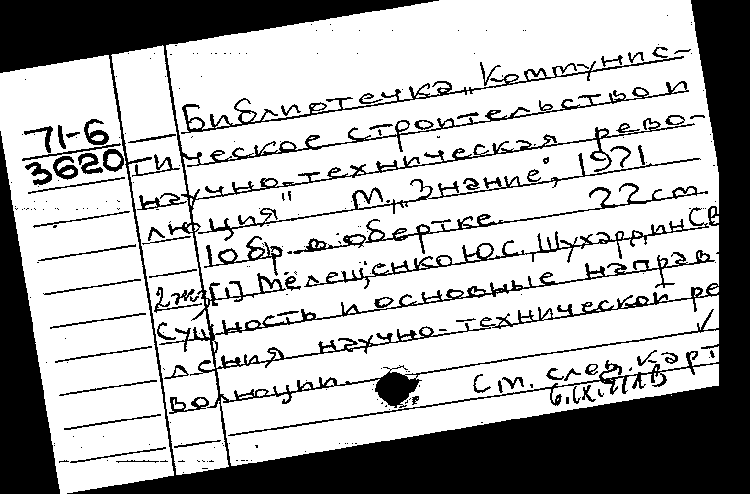 Библиотечка „Коммунис-
71-6
3620
тическое строительство и
научно-техническая рево-
люция" М., „Знание", 1971
22 см.
10 бр. в обертке.
2 экз [1]. Мелещенко Ю.С., Шухардин С.В
Сущность и основные направ
ления научно-технической ре
волюции.
См. след. карт